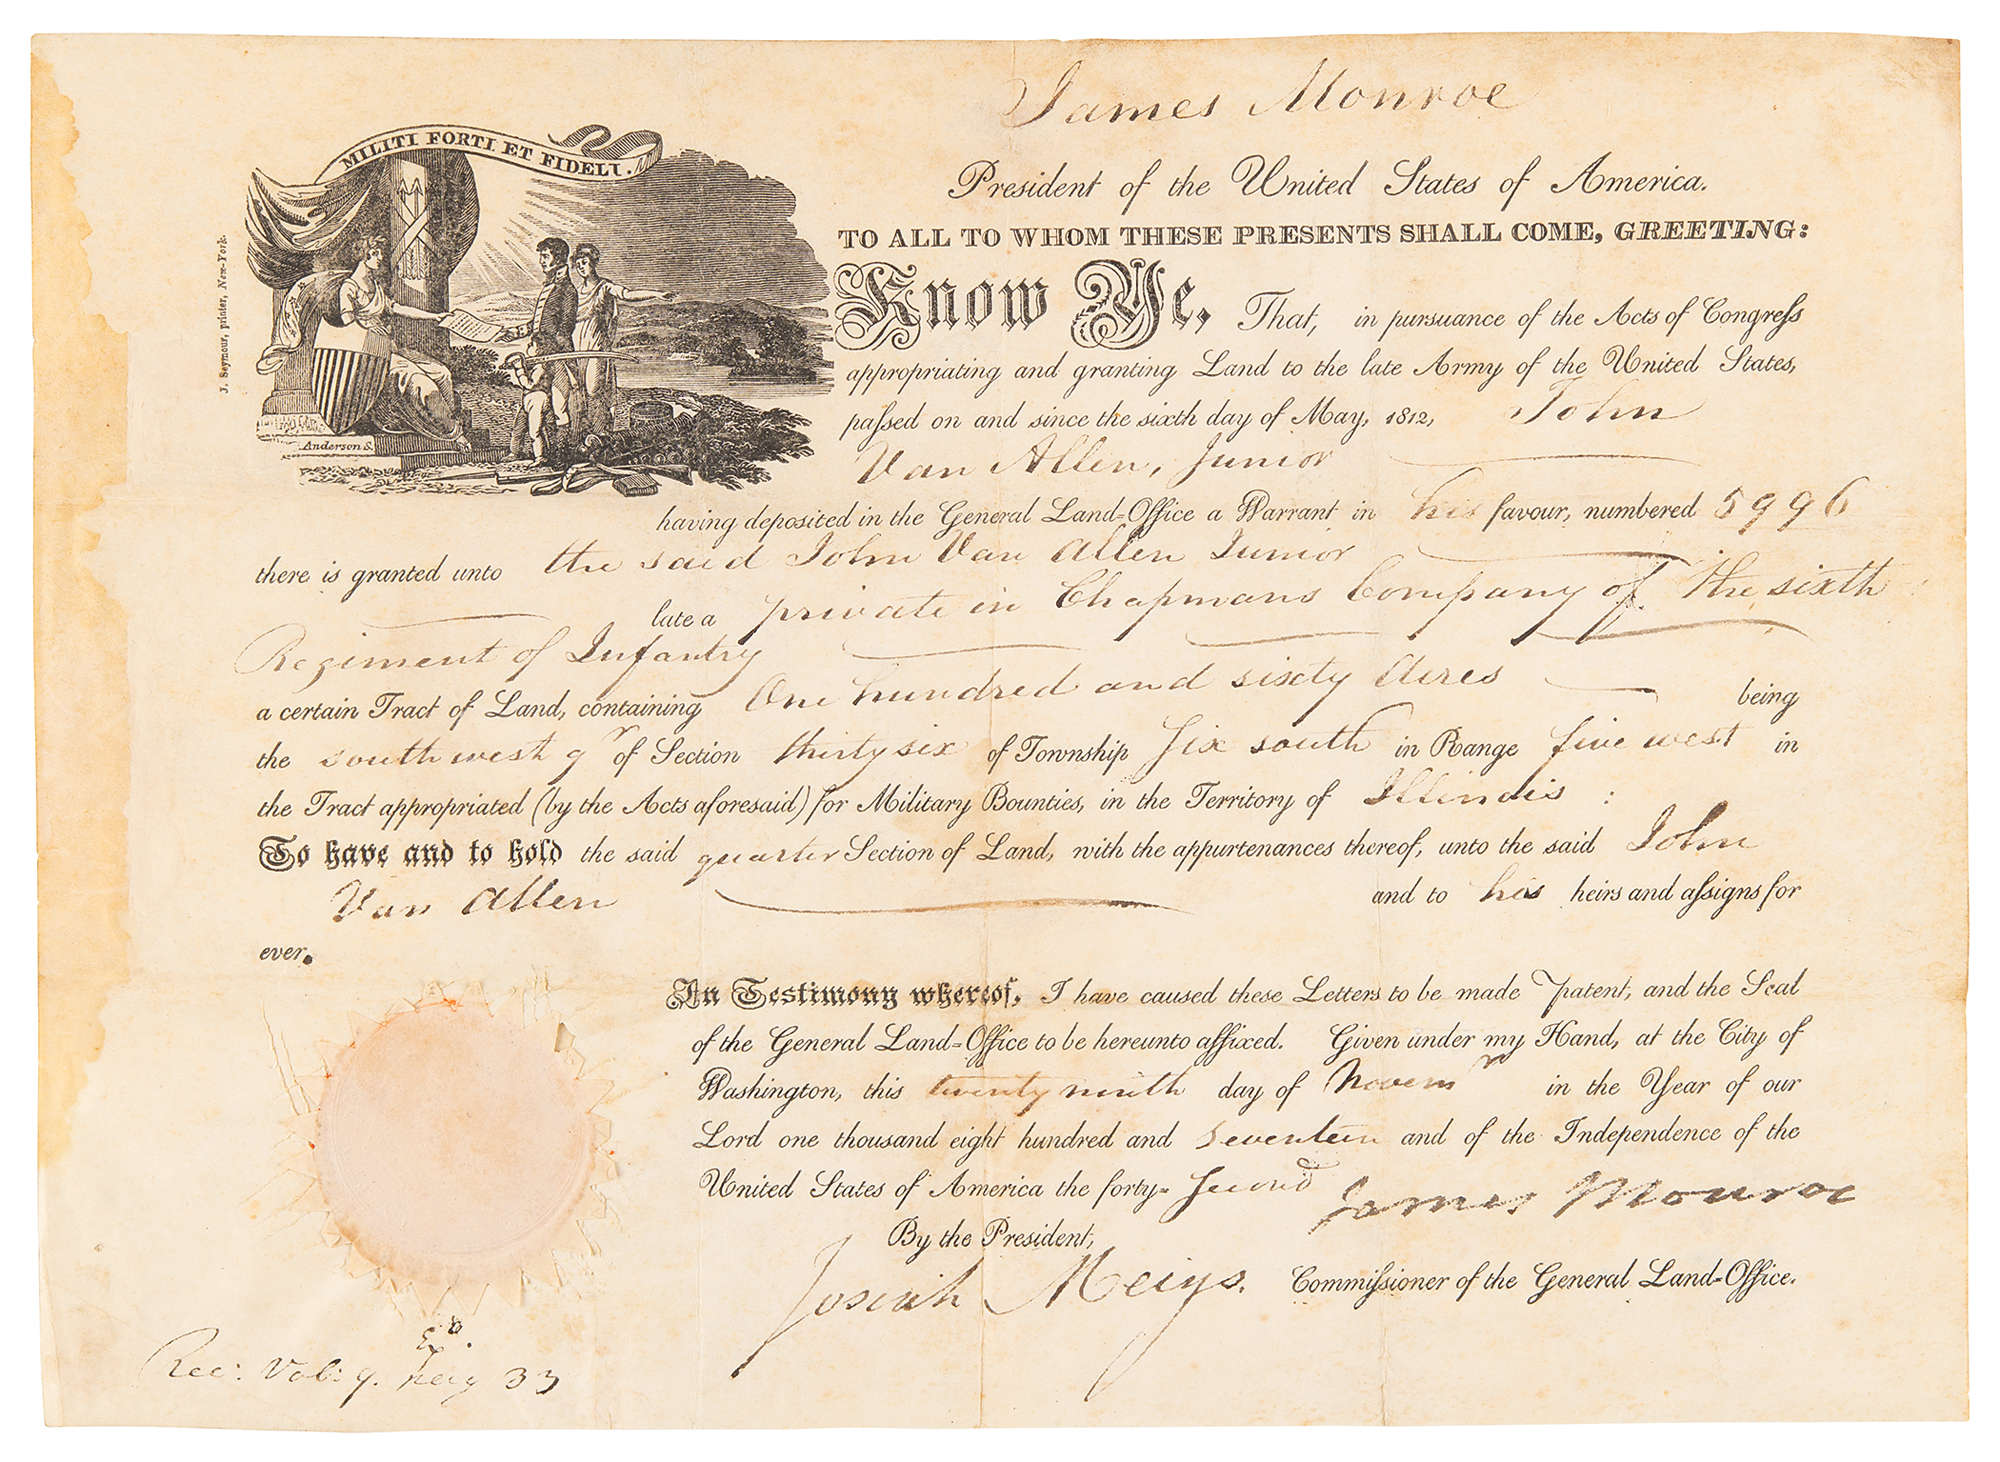 James Monroe
MILITI FORTI ET FIDELI.
President of the United States of America.
TO ALL TO WHOM THESE PRESENTS SHALL COME, GREETING:
J. Seymour, printer, New-York.
Know Ye, That, in pursuance of the Acts of Congreſs
appropriating and granting Land to the late Army of the United States,
paſsed on and since the sixth day of May, 1812, John
Anderson S.
Van Allen, Junior
having deposited in the General Land-Office a Warrant in his favour, numbered 5996
there is granted unto the said John Van Allen Junior
late a private in Chapmans Company of the sixth
Regiment of Infantry
a certain Tract of Land, containing One hundred and sixty Acres being
the south west qr of Section thirty six of Township six south in Range five west in
the Tract appropriated (by the Acts aforesaid) for Military Bounties, in the Territory of Illinois :
To have and to hold the said quarter Section of Land, with the appurtenances thereof, unto the said John
Van Allen and to his heirs and aſsigns for
ever.
In Testimony whereof, I have caused these Letters to be made Patent, and the Seal
of the General Land-Office to be hereunto affixed. Given under my Hand, at the City of
Washington, this twenty ninth day of Novemr in the Year of our
Lord one thousand eight hundred and seventeen and of the Independence of the
United States of America the forty- second
James Monroe
By the President,
Josiah Meigs. Commiſsioner of the General Land-Office.
Exd.
Rec: Vol: 9. Page 33